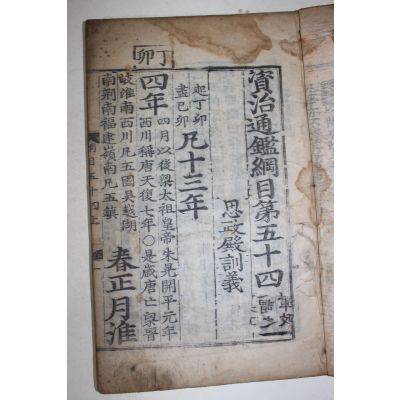 資治通鑑綱目第五十四
思政殿訓義
起丁卯
盡己卯
凡十三年
丁卯
四年
四月以後梁太祖皇帝朱晃開平元年
西川稱唐天復七年○是歲唐亡梁晉
岐淮南西川凡五國吳越湖
南荊南福建嶺南凡五鎮
春正月淮